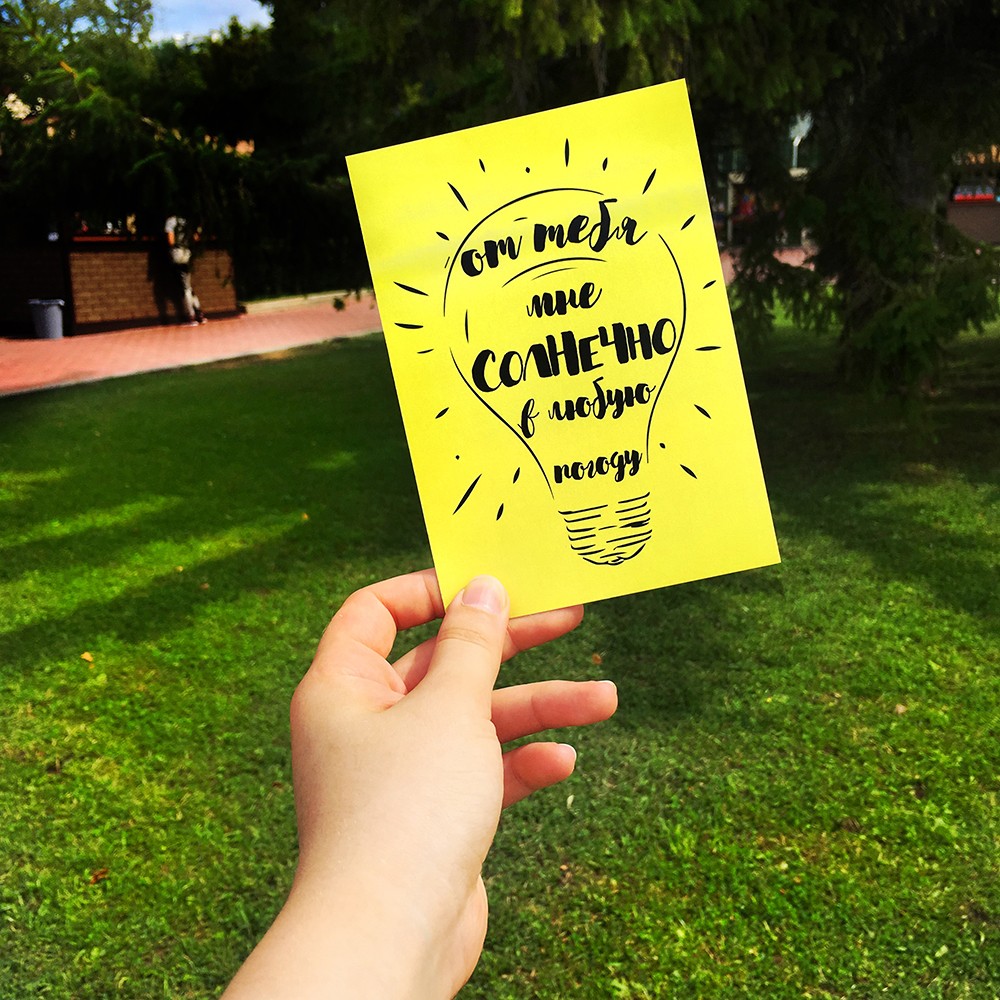 от тебя
мне
СОЛНЕЧНО
в любую
погоду